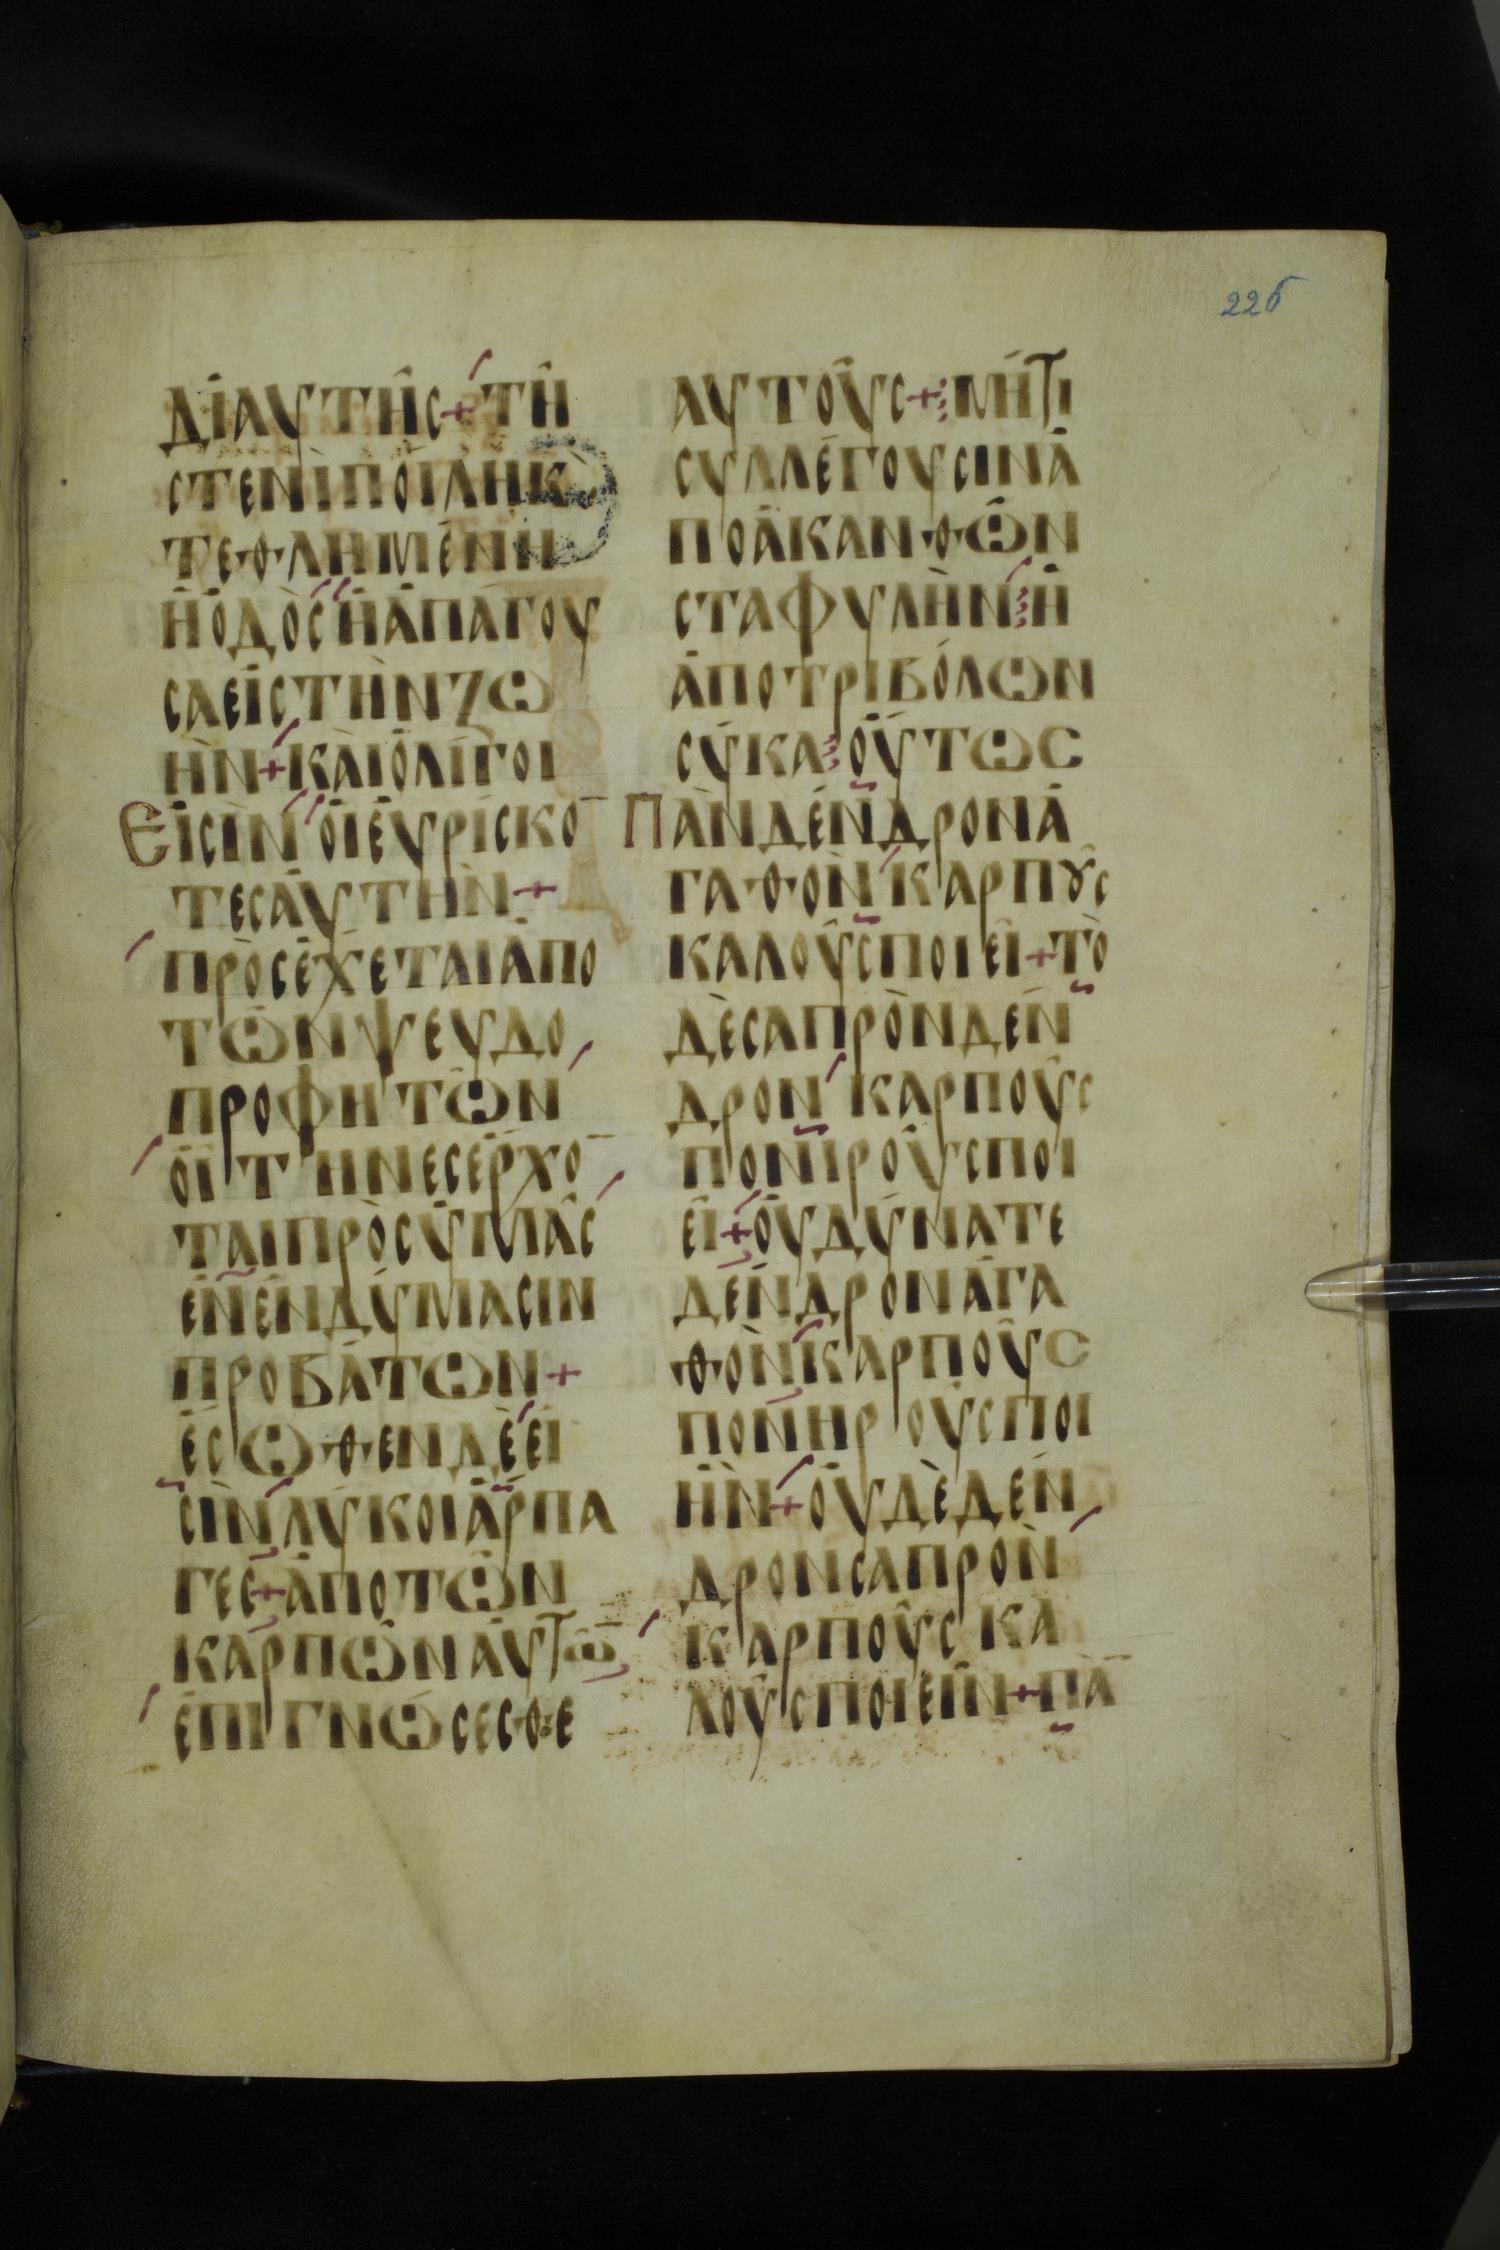 226
ΔΙΑΥΤΗ͂Σ + ΤΗ͂
ΣΤΕΝΙΠΟΙΛΗΚ
ΤΕΘΛΗΜΕΝΗ
ἩὉΔῸΣἩἈΠΆΓΟΥ
ΣΑΕἸΣΤῊΝΖΩ
ῊΝ + ΚΑῚὈΛΊΓΟΙ
ΕἸΣῚΝὉΙἙΥΡΊΣΚΟ̄
ΤΕΣἈΥΤῊΝ +
ΠΡΟΣΈΧΕΤΑΙἈΠΟ
ΤΩ͂ΝΨΕΥΔΟ
ΠΡΟΦΗΤΩ͂Ν
ὉΪΤΗΝΕΣΕΡΧΟ̄
ΤΑΙΠΡῸΣὙΜΑ͂Σ
ἘΝἘΝΔΎΜΑΣΙΝ
ΠΡΟΒΆΤΩΝ +
ἜΣΩΘΕΝΔῈΕἸ
ΣῚΝΛΎΚΟΙἍΡΠΑ
ΓΕΣ + ἈΠΟΤΩ͂Ν
ΚΑΡΠΩ͂ΝἈΥΤΩ̄
ἘΠΙΓΝΏΣΕΣΘΕ
ΑΥΤΟΎΣ + ΜΉΤΙ
ΣΥΛΛΈΓΟΥΣΙΝἈ
ΠΟἈΚΑΝΘΩ͂Ν
ΣΤΑΦΥΛῊΝἪ
ἈΠΟΤΡΙΒΌΛΩΝ
ΣΎΚΑ ΟὝΤΩΣ
ΠΑ͂ΝΔΈΝΔΡΟΝἈ
ΓΑΘῸΝΚΑΡΠȢ͂Σ
ΚΑΛΟΥ͂ΣΠΟΙΕΙ͂ + ΤῸ
ΔῈΣΑΠΡῸΝΔΈΝ
ΔΡΟΝΚΑΡΠΟΥ͂Σ
ΠΟΝΙΡΟΎΣΠΟΙ
ΕΙ͂ + ΟΥΔΎΝΑΤΕ
ΔΈΝΔΡΟΝἈΓΑ
ΘῸΝΚΑΡΠΟΥ͂Σ
ΠΟΝΗΡΟΎΣΠΟΙ
ΗΙ͂Ν + ΟΥΔῈΔΈΝ
ΔΡΟΝΣΑΠΡῸΝ
ΚΑΡΠΟΥ͂ΣΚΑ
ΛΟΥ͂ΣΠΟΙΕΙ͂Ν + ΠᾹ